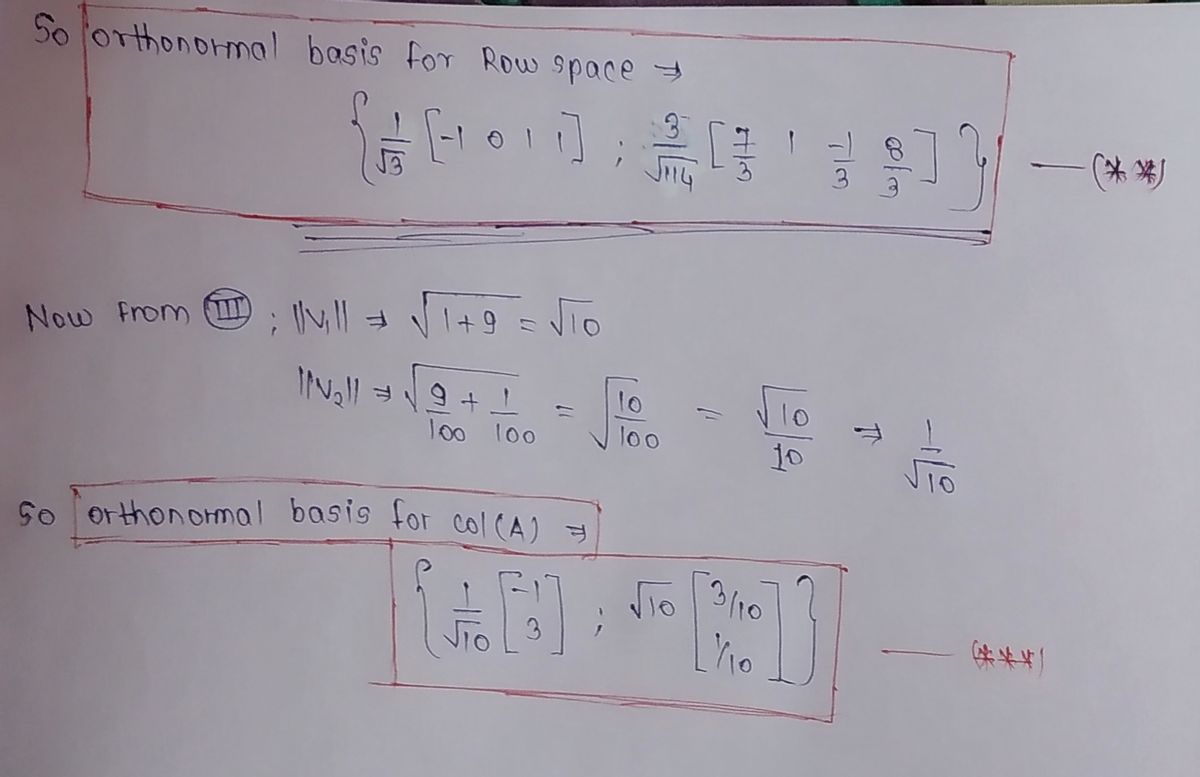 So orthonormal basis for Row space ⇒
{ 1/√3 [-1 0 1 1] ; 3/√114 [7/3 1 -1/3 8/3] } — (**)
Now from III ; ||V₁|| ⇒ √(1+9) = √10
||V₂|| ⇒ √(9/100 + 1/100) = √(10/100) = √10/10 ⇒ 1/√10
So orthonormal basis for col(A) ⇒
{ 1/√10 [-1 3] ; √10 [3/10 1/10] } — (***)